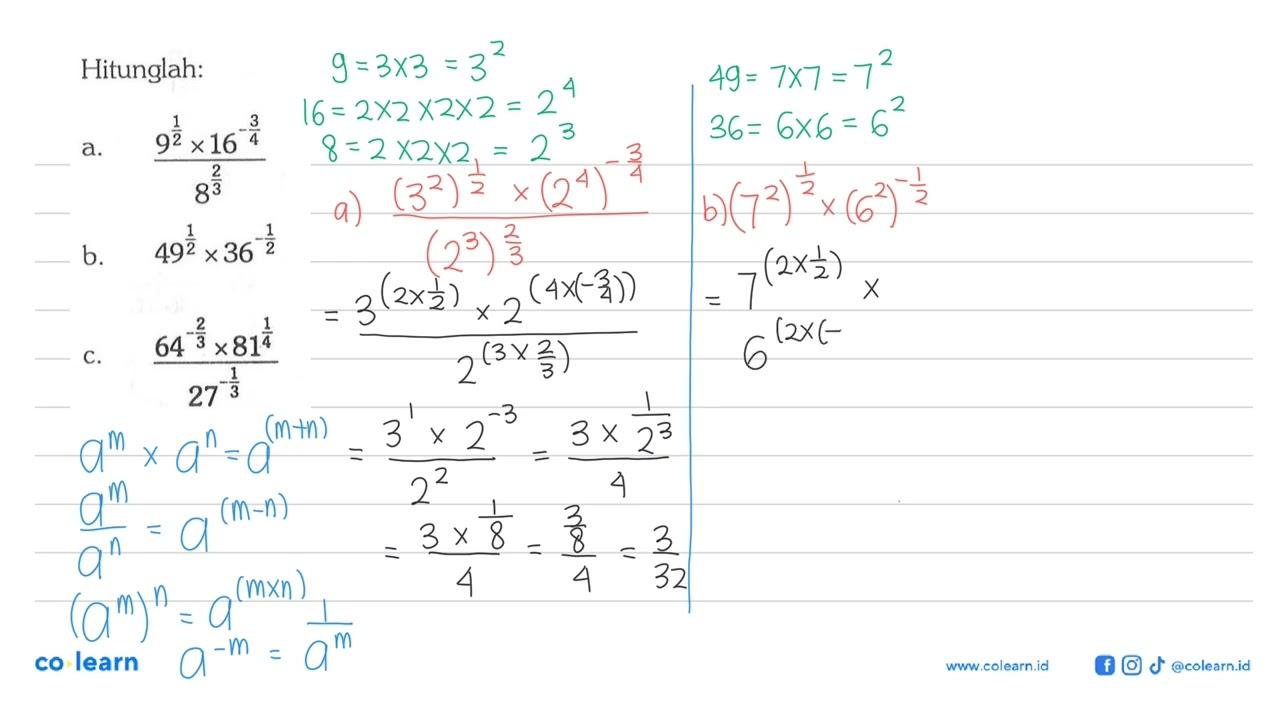 Hitunglah:
a. \frac{9^{\frac{1}{2}} × 16^{-\frac{3}{4}}}{8^{\frac{2}{3}}}
b. 49^{\frac{1}{2}} × 36^{-\frac{1}{2}}
c. \frac{64^{-\frac{2}{3}} × 81^{\frac{1}{4}}}{27^{-\frac{1}{3}}}
a^m × a^n = a^{(m+n)}
\frac{a^m}{a^n} = a^{(m-n)}
(a^m)^n = a^{(m×n)}
a^{-m} = \frac{1}{a^m}
9 = 3×3 = 3^2
16 = 2×2×2×2 = 2^4
8 = 2×2×2 = 2^3
a) \frac{(3^2)^{\frac{1}{2}} × (2^4)^{-\frac{3}{4}}}{(2^3)^{\frac{2}{3}}}
= \frac{3^{(2×\frac{1}{2})} × 2^{(4×(-\frac{3}{4}))}}{2^{(3×\frac{2}{3})}}
= \frac{3^1 × 2^{-3}}{2^2} = \frac{3 × \frac{1}{2^3}}{4}
= \frac{3 × \frac{1}{8}}{4} = \frac{\frac{3}{8}}{4} = \frac{3}{32}
49 = 7×7 = 7^2
36 = 6×6 = 6^2
b) (7^2)^{\frac{1}{2}} × (6^2)^{-\frac{1}{2}}
= 7^{(2×\frac{1}{2})} ×
6^{(2×(-
co learn
www.colearn.id
@colearn.id